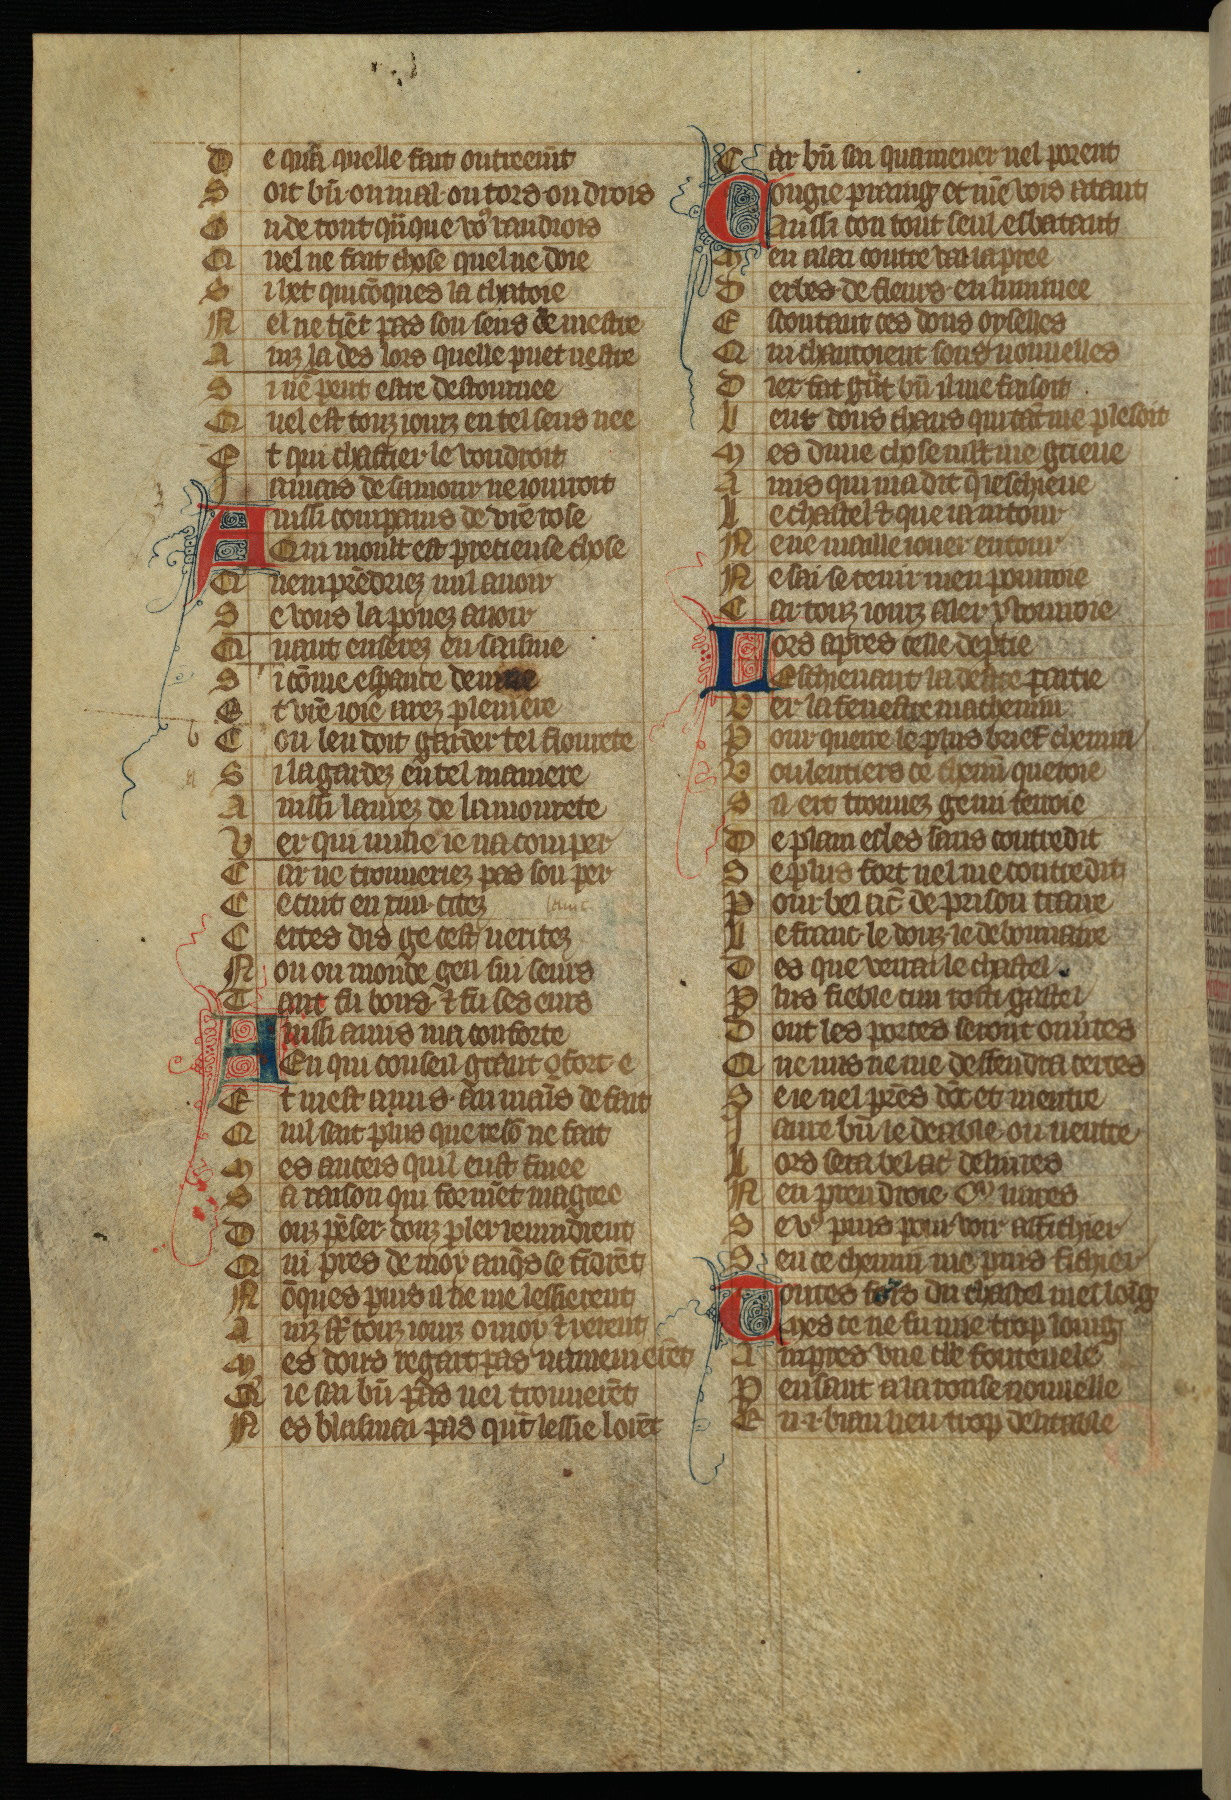 De qũq̃ quelle fait outreem̃t
Soit bñ ou mal ou tors ou drois
Ou de tout q̃nque vo9 vaudrois
Quel ne fait chose quel ne doie
Si het quicõques la chatoie
Nel ne tiẽt pas son sens de mestre
Ainz la des lors quelle puet nestre
Si nẽ peut estre destournee
Quel est touz iourz en tel sens nee
Et qui chastier le voudroit
Iamais de samour ne iouiroit
Aussi compains de vr̃e rose
Qui moult est precieuse chose
Nem prẽdriez nul auoir
Se vous la pouez auoir
Quant enserez en saisine
Si cõme esperance deuine
Et vr̃e ioie arez pleniere
Cou len doit garder tel flourete
Si la gardez en tel maniere
Aussi laurez de lamourete
Ver qui nulie ie na comper
Car ne trouueriez pas son per
Ce cuit en xiiii citez
Certes dis ge cest veritez
Non ou monde gen sui seurs
Tant fu bons ⁊ fu ses eurs
Aussi amis ma conforte
En qui conseil grant ꝯfort e
Et mest auis au mains de fait
Quil sait plus que resõ ne fait
Mes anceis quil eust finee
Sa raison qui form̃et magree
Douz pẽser douz pler reuindrent
Qui pres de moy auq̃s se tindrẽt
Nõques puis il ne me lessierent
Ainz st̃ touz iourz o moy ⁊ verent
Mes dous regart pas namenerẽt
Que ie sai bñ pas nel trouuerẽt
Nes blasmai pas quẽt lessie lorẽt
Car bñ sai quamener nel porent
Congie praing et mẽ vois atant
Aussi con tout seul esbatant
Men alai contre val la pree
Derbes de fleurs enluminee
Escoutant ces dous oyselles
Qui chantoient sons nouuelles
Tex fat gñt bñ il me faisoit
Leur dous chans qui tãt me plesoit
Mes dune chose mst me grieue
Amis qui ma dit q̃ieschieue
Le chastel ⁊ que ia autour
Ne ne maille iouer entour
Ne sai se tenir men pourroie
Car touz iourz aler y vourroie
Lors apres celle deptie
Eschieuant la destre partie
Ver la senestre macheminẽ
Pour querre le plus brief chemin
Voulentiers ce chemĩ queroie
Sil ert trouuez ge mi feroie
De plain esles sans contredit
Se plus fort nel me contredit
Pour bel acl̃ de prison traire
Le franc le douz le debonnaire
Des que verrai le chastel
Plus fieble cun rosti gastel
Dont les portes seront ouũtes
Que nus ne me deffendra certes
Se ie nel prẽs dõt et mentre
Iaure bñ le deable ou ventre
Lors sera bel acl̃ deliures
Nen prendroie .C.m liures
Se v9 puis pour voir affichier
Sen ce chemĩ me puis fichier
Toutes fois du chastel mesloĩg
Mes ce ne fu mie trop loing
Aupres vne cle fontenele
Pensant a la rouse nouuelle
En .i. biau lieu trop delitable